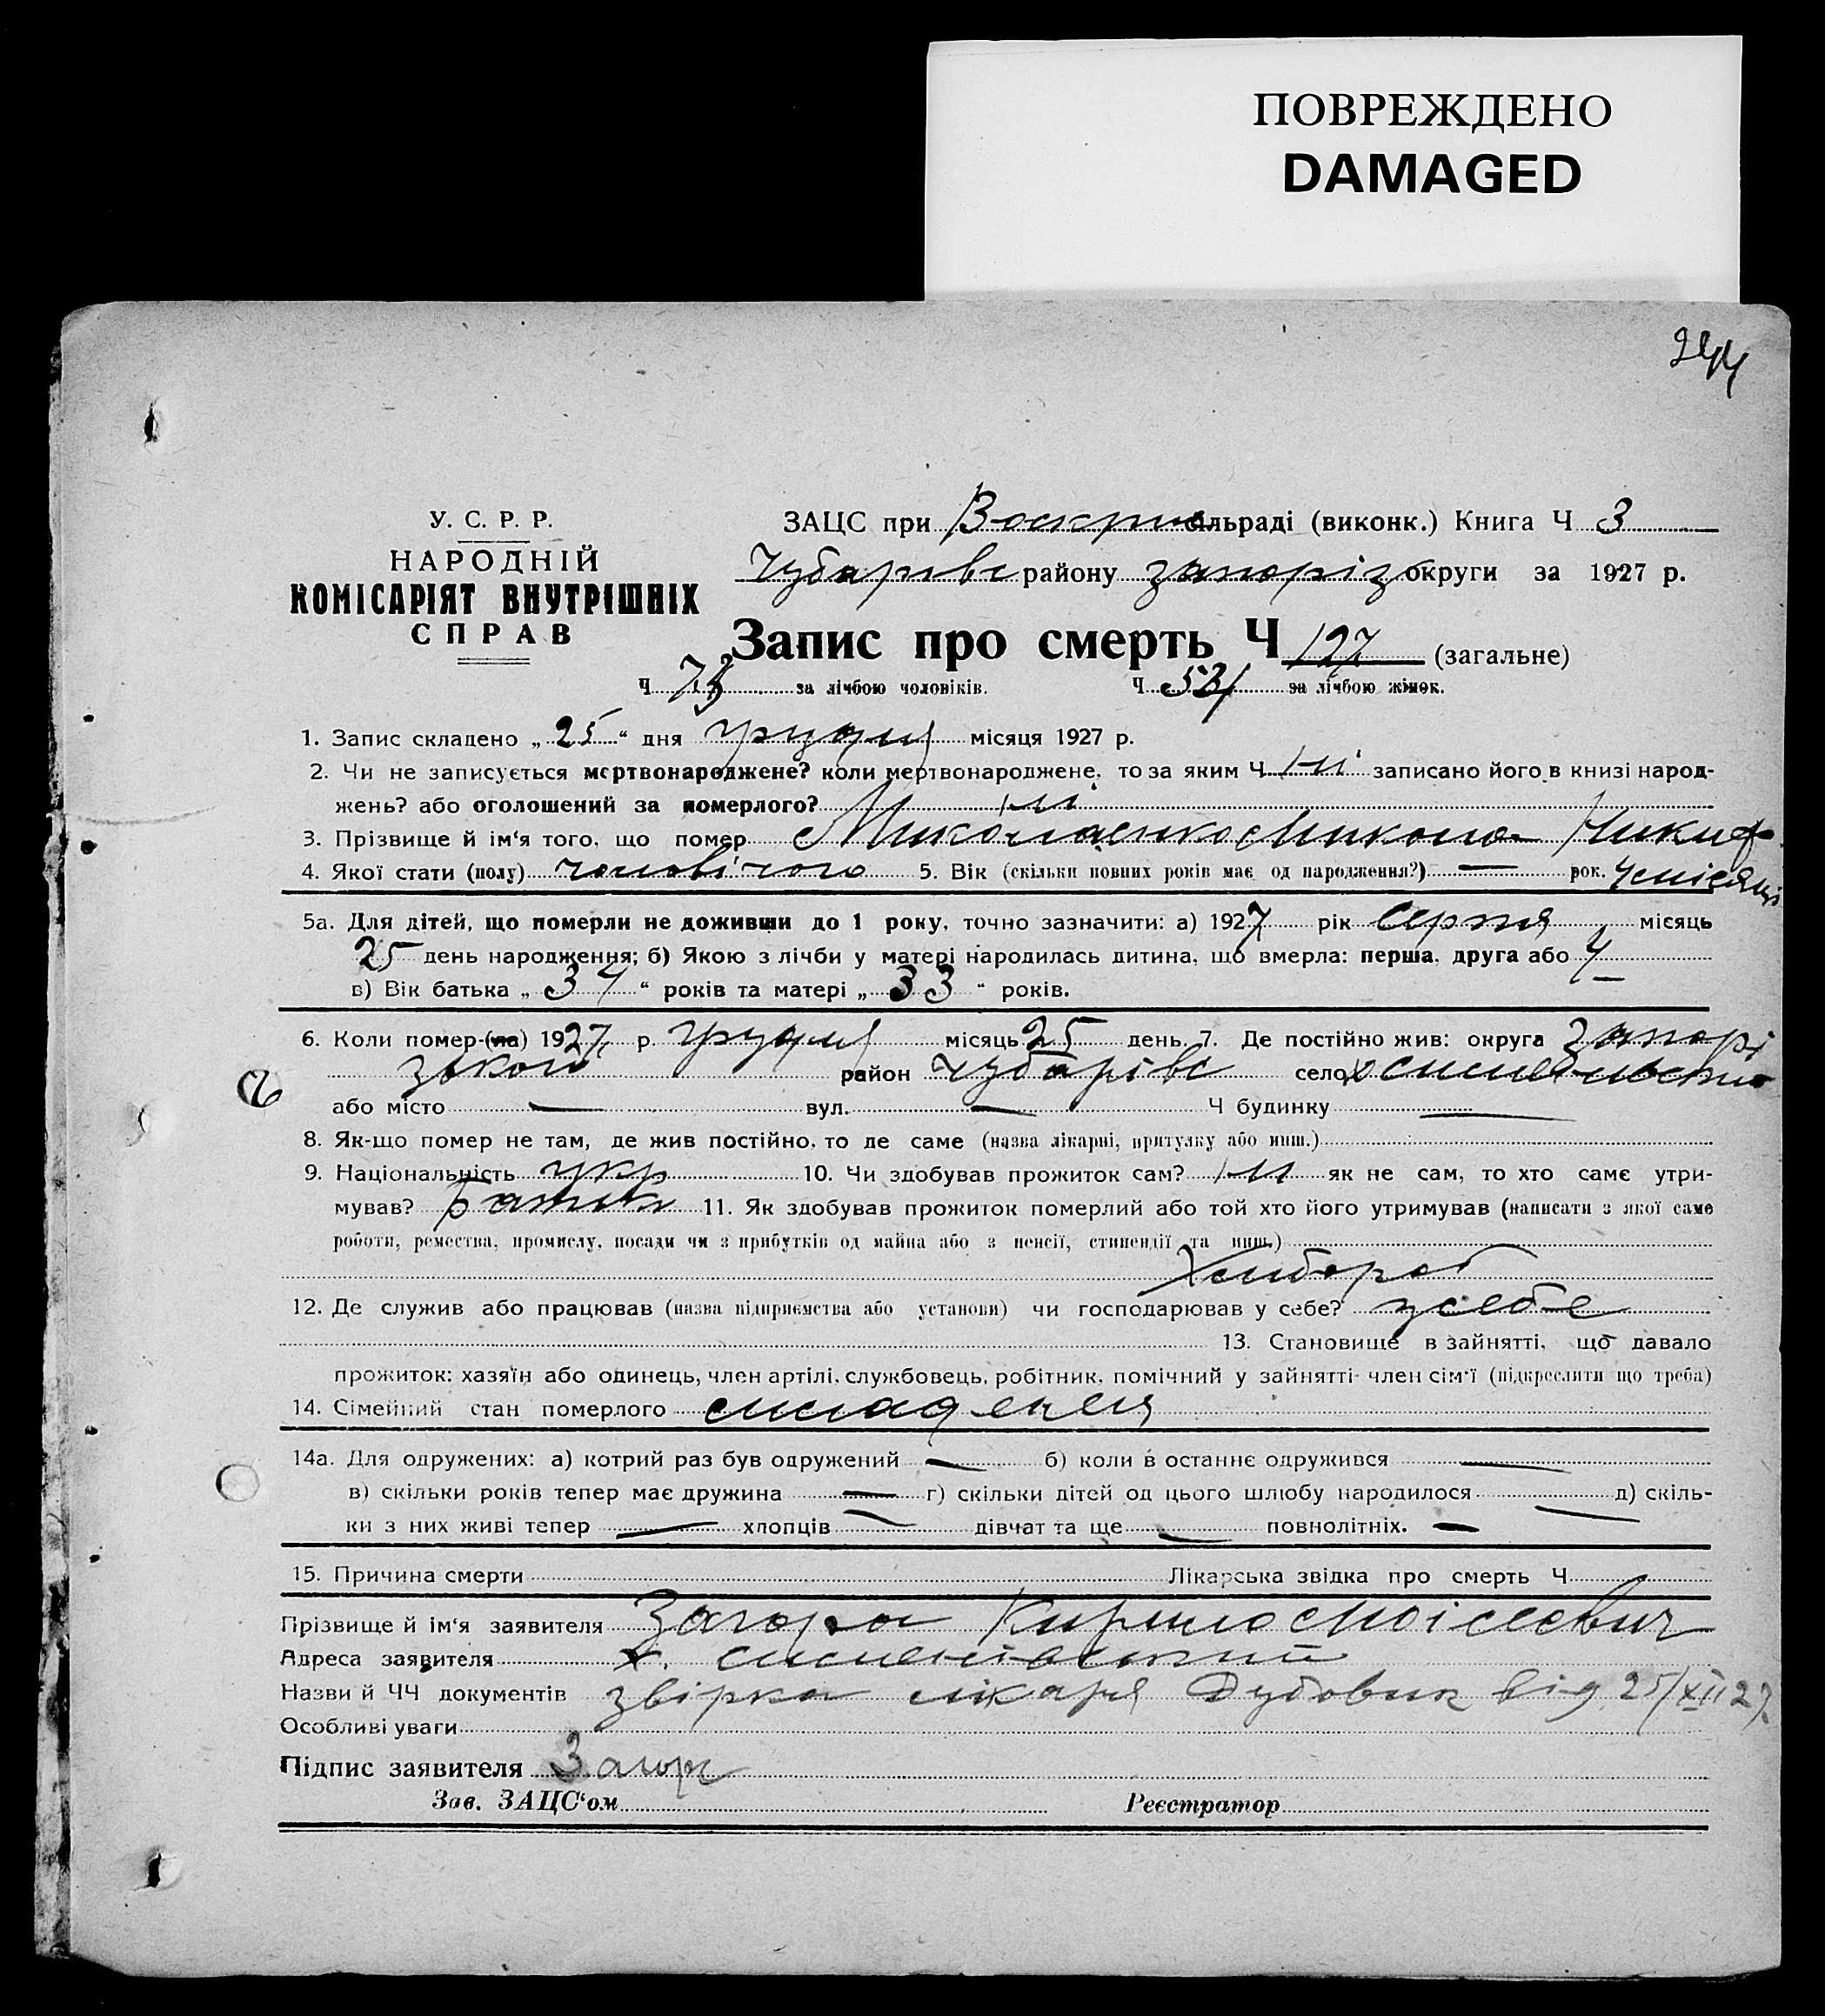 ПОВРЕЖДЕНО
DAMAGED
244
У. С. Р. Р.
НАРОДНІЙ
КОМІСАРІЯТ ВНУТРІШНІХ
СПРАВ
ЗАЦС при Воскри сільраді (виконк.) Книга Ч 3
Чубарівс району запоріз округи за 1927 р.
Запис про смерть Ч 127 (загальне)
Ч 73 за лічбою чоловіків. Ч за лічбою жінок.
1. Запис складено „ 25 “ дня грудня місяця 1927 р.
2. Чи не записується мертвонароджене? коли мертвонароджене, то за яким Ч ні записано його в книзі народ-
жень? або оголошений за померлого? ні
3. Прізвище й ім‘я того, що помер Миколаєнко Микола Никиф
4. Якої стати (полу) чоловічого 5. Вік (скільки повних років має од народження?) — рок. 4 місяці
5а. Для дітей, що померли не доживши до 1 року, точно зазначити: а) 1927 рік серпня місяць
25 день народження; б) Якою з лічби у матері народилась дитина, що вмерла: перша, друга або 4
в) Вік батька „ 34 “ років та матері „ 33 “ років.
6. Коли помер-(ла) 1927 р. грудня місяць 25 день. 7. Де постійно жив: округа Запорі
зького район Чубарівс село
або місто — вул. — Ч будинку —
8. Як-що помер не там, де жив постійно, то де саме (назва лікарні, притулку або инш.)
9. Національність укр 10. Чи здобував прожиток сам? ні як не сам, то хто саме утри-
мував? Батьк 11. Як здобував прожиток померлий або той хто його утримував (написати з якої саме
роботи, ремества, промислу, посади чи з прибутків од майна або з пенсії, стипендії та инш.)
Хлібороб
12. Де служив або працював (назва підприємства або установи) чи господарював у себе? у себе
13. Становище в зайнятті, що давало
прожиток: хазяїн або одинець, член артілі, службовець, робітник, помічний у зайнятті- член сім‘ї (підкреслити що треба)
14. Сімейний стан померлого младенец
14а. Для одружених: а) котрий раз був одружений — б) коли в останнє одружився —
в) скільки років тепер має дружина — г) скільки дітей од цього шлюбу народилося — д) скіль-
ки з них живі тепер — хлопців — дівчат та ще — повнолітніх. —
15. Причина смерти Лікарська звідка про смерть Ч
Прізвище й ім‘я заявителя Загора Кирило Моісеєвич
Адреса заявителя х.
Назви й ЧЧ документів звірка лікаря Дубовик від 25/XII 27
Особливі уваги
Підпис заявителя Загор
Зав. ЗАЦС‘ом Реєстратор